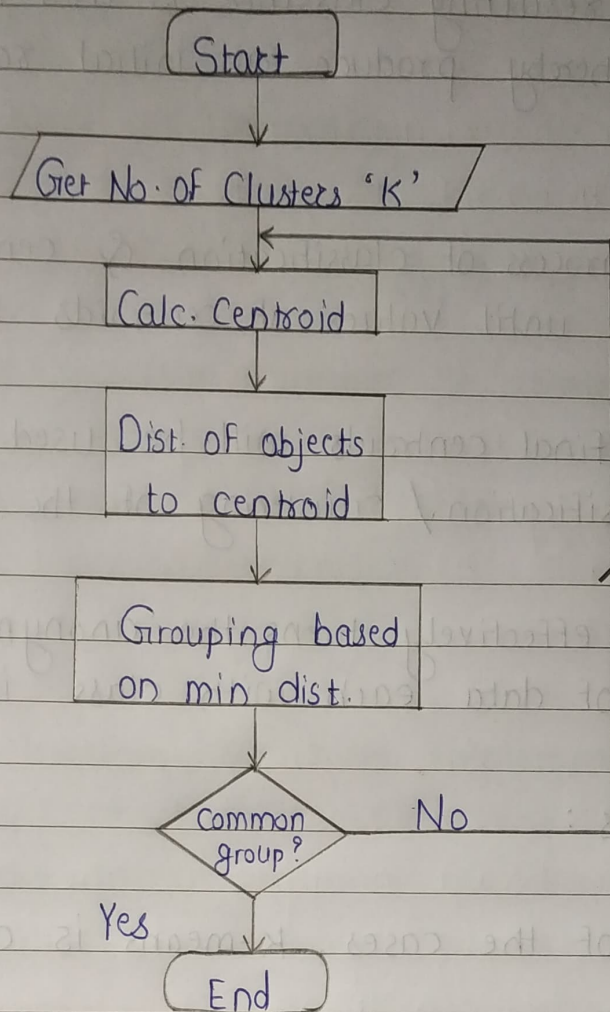 Start
Get No. of Clusters 'K'
Calc. Centroid
Dist. of objects
to centroid
Grouping based
on min dist.
Common
group?
No
Yes
End